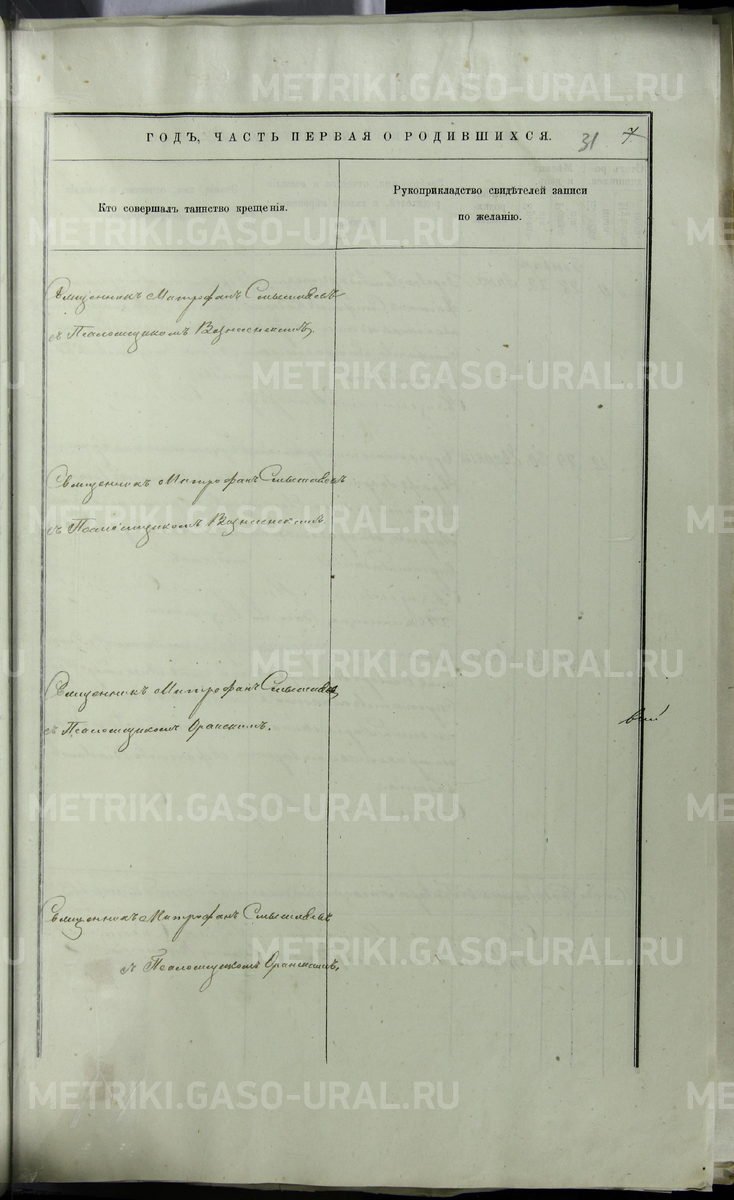 METRIKI.GASO-URAL.RU
ГОДЪ, ЧАСТЬ ПЕРВАЯ О РОДИВШИХСЯ.
31 7
Кто совершалъ таинство крещенія.
Рукоприкладство свидѣтелей записи
по желанію.
Священникъ Митрофанъ Смышляевъ
съ Псаломщикомъ Вознесенскимъ.
METRIKI.GASO-URAL.RU
Священникъ Митрофанъ Смышляевъ
съ Псаломщикомъ Вознесенскимъ
METRIKI.GASO-URAL.RU
METRIKI.GASO-URAL.RU
Священникъ Митрофанъ Смышляевъ
съ Псаломщикомъ Оранскимъ.
METRIKI.GASO-URAL.RU
Священникъ Митрофанъ Смышляевъ
съ Псаломщикомъ Оранскимъ.
METRIKI.GASO-URAL.RU
METRIKI.GASO-URAL.RU